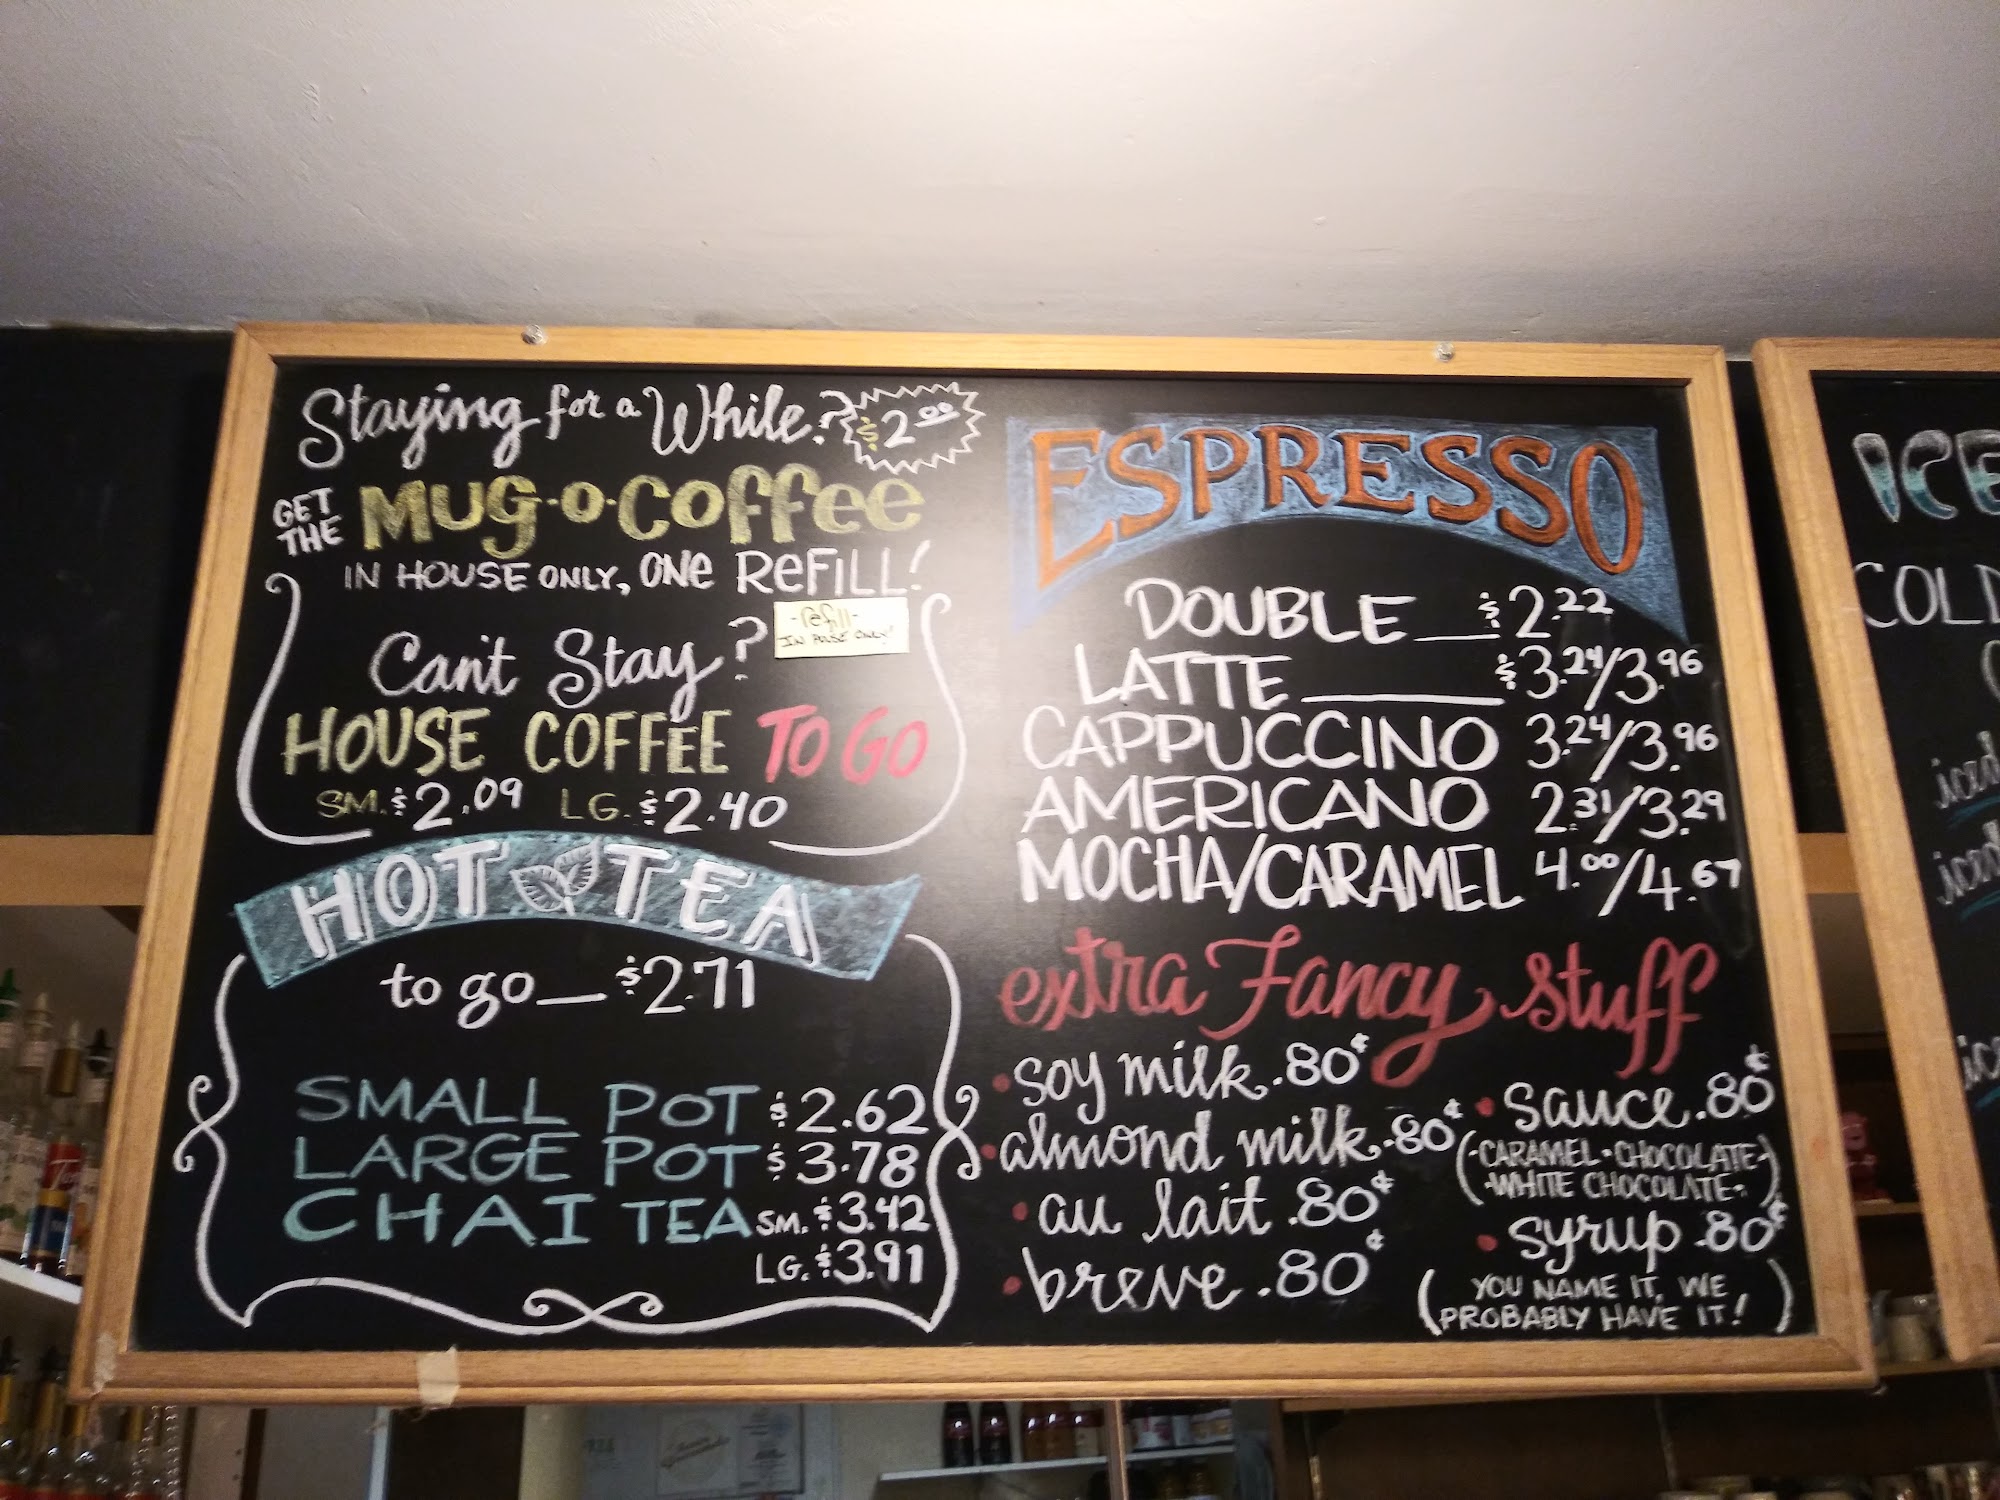 Staying for a While? $2.00
GET THE MUG-O-COFFEE
IN HOUSE ONLY, ONE REFILL!
-refill-
IN HOUSE ONLY!
Can't Stay?
HOUSE COFFEE TO GO
SM. $2.09 LG. $2.40
HOT TEA
to go $2.71
SMALL POT $2.62
LARGE POT $3.78
CHAI TEA SM. $3.42
LG. $3.91
ESPRESSO
DOUBLE $2.22
LATTE $3.24/3.96
CAPPUCCINO 3.24/3.96
AMERICANO 2.31/3.29
MOCHA/CARAMEL 4.00/4.67
extra Fancy stuff
• soy milk .80¢
• almond milk .80¢
• au lait .80¢
• breve .80¢
• sauce .80¢
(•CARAMEL•CHOCOLATE•
•WHITE CHOCOLATE•)
• syrup .80¢
(YOU NAME IT, WE
PROBABLY HAVE IT!)
ICE
COLD
iced
iced